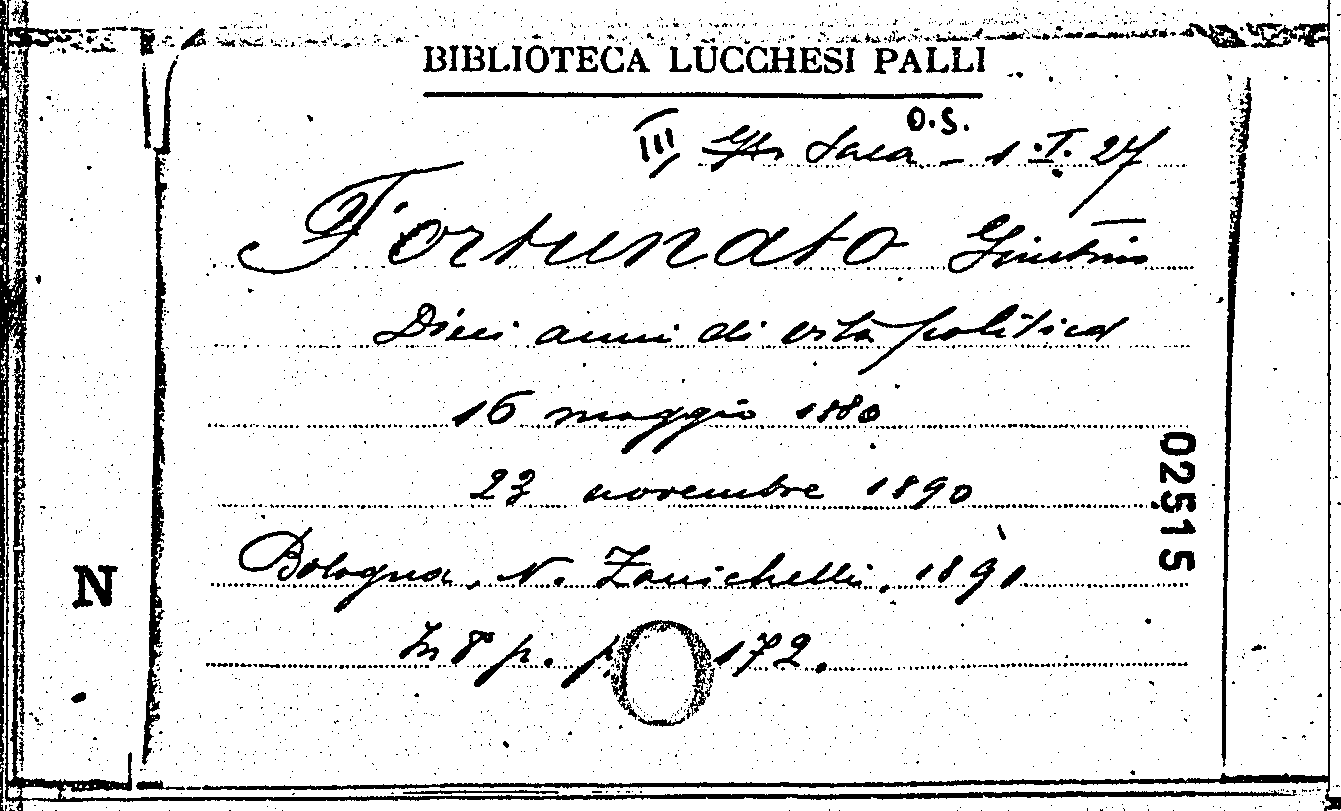 BIBLIOTECA LUCCHESI PALLI
O.S.
III, Sala - 1.I.27
Fortunato Giustino
Dieci anni di vita politica
16 maggio 1880
23 novembre 1890
Bologna, N. Zanichelli, 1891
In 8° p. p. 172.
02515
N